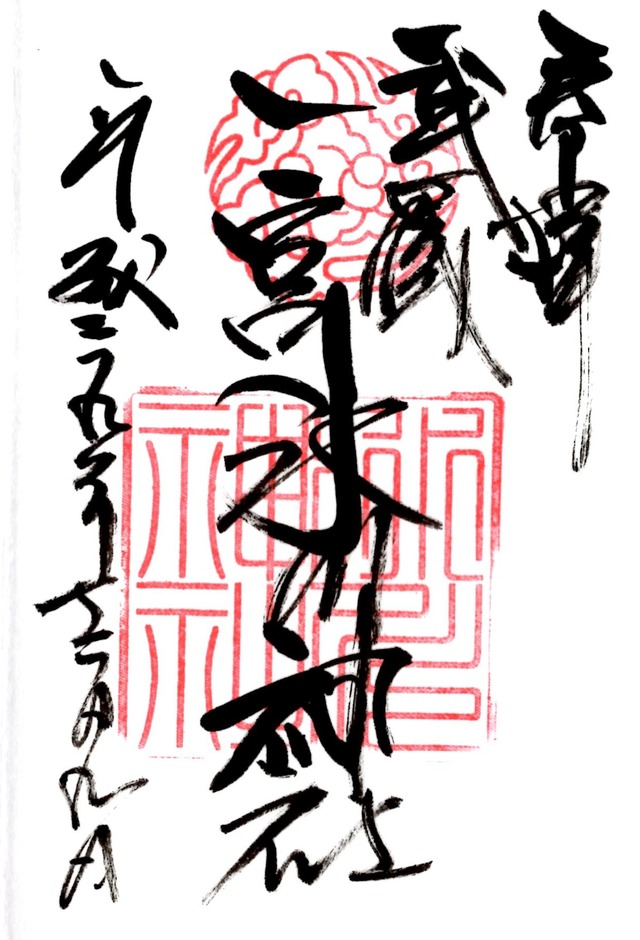 奉拝
武蔵
一宮氷川神社
平成二九年十二月九日
氷川
神社